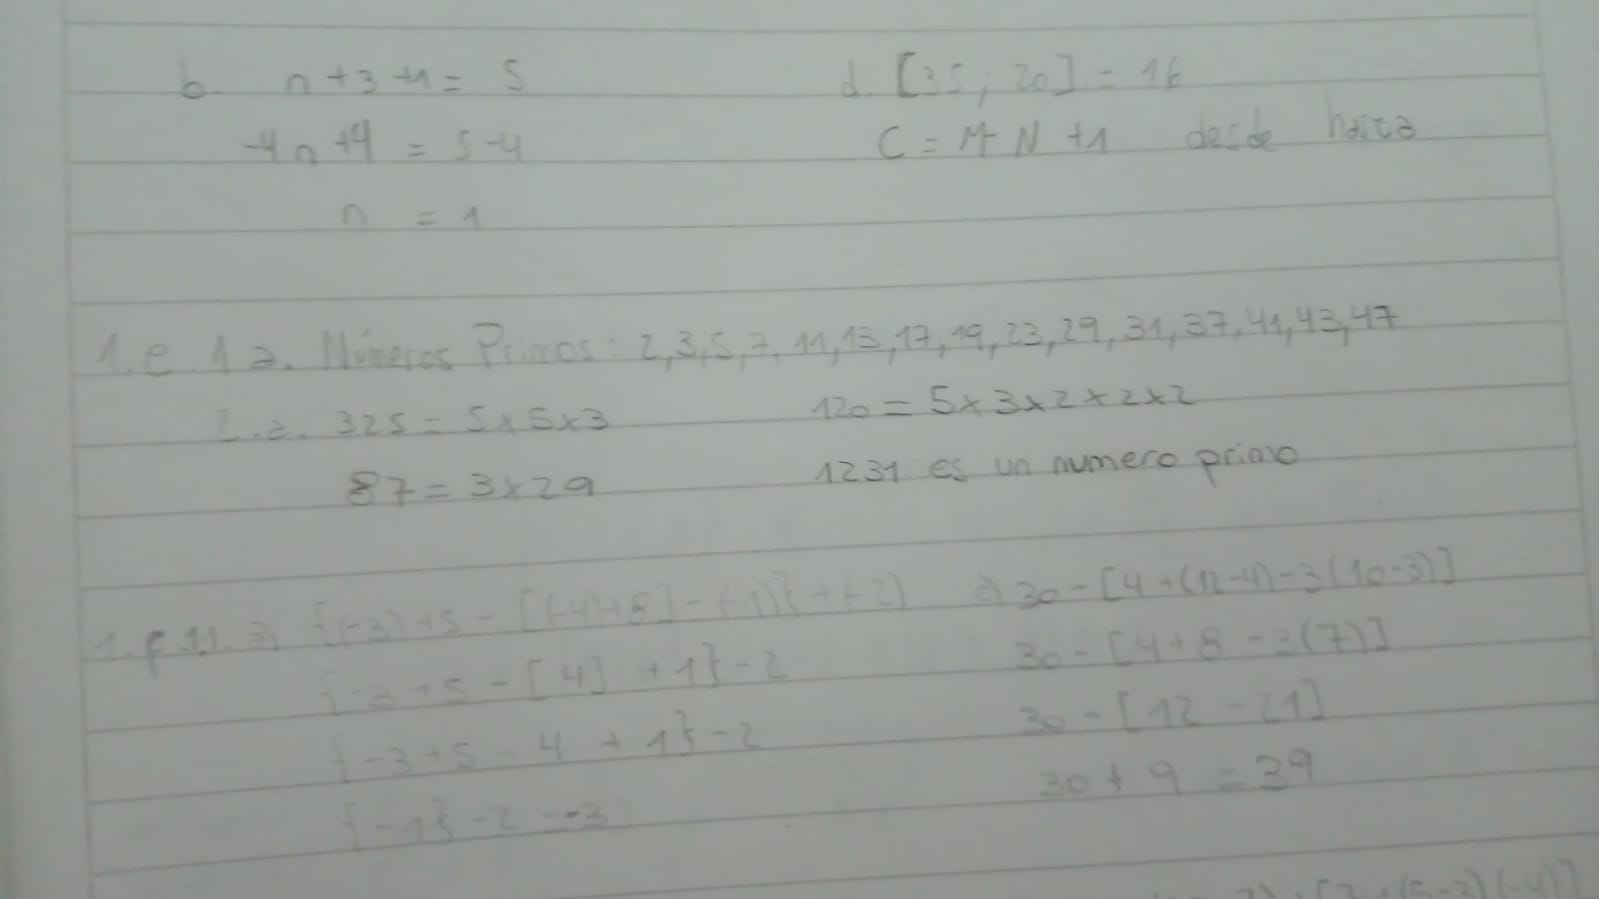 b. n+3+1= 5
-4n+4 = 5-4
n = 1
d. [35; 20] = 16
C = M-N+1 desde hasta
1.e.1 a. Números Primos: 2,3,5,7,11,13,17,19,23,29,31,37,41,43,47
2.a. 325 = 5x5x3
120 = 5x3x2x2x2
87 = 3x29
1231 es un numero primo
1.f.11. a) {(-3)+5-[(-4)+8]-(-1)}+(-2)
{-3+5-[4]+1}-2
{-3+5-4+1}-2
{-1}-2=-3
c) 30-[4+(12-4)-3(10-3)]
30-[4+8-3(7)]
30-[12-21]
30+9=39
[7+(5-3)(-4)]